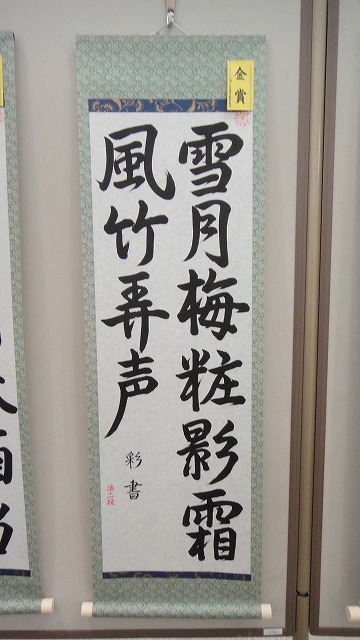 金賞
雪月梅粧影霜
風竹弄声
彩書
準二段